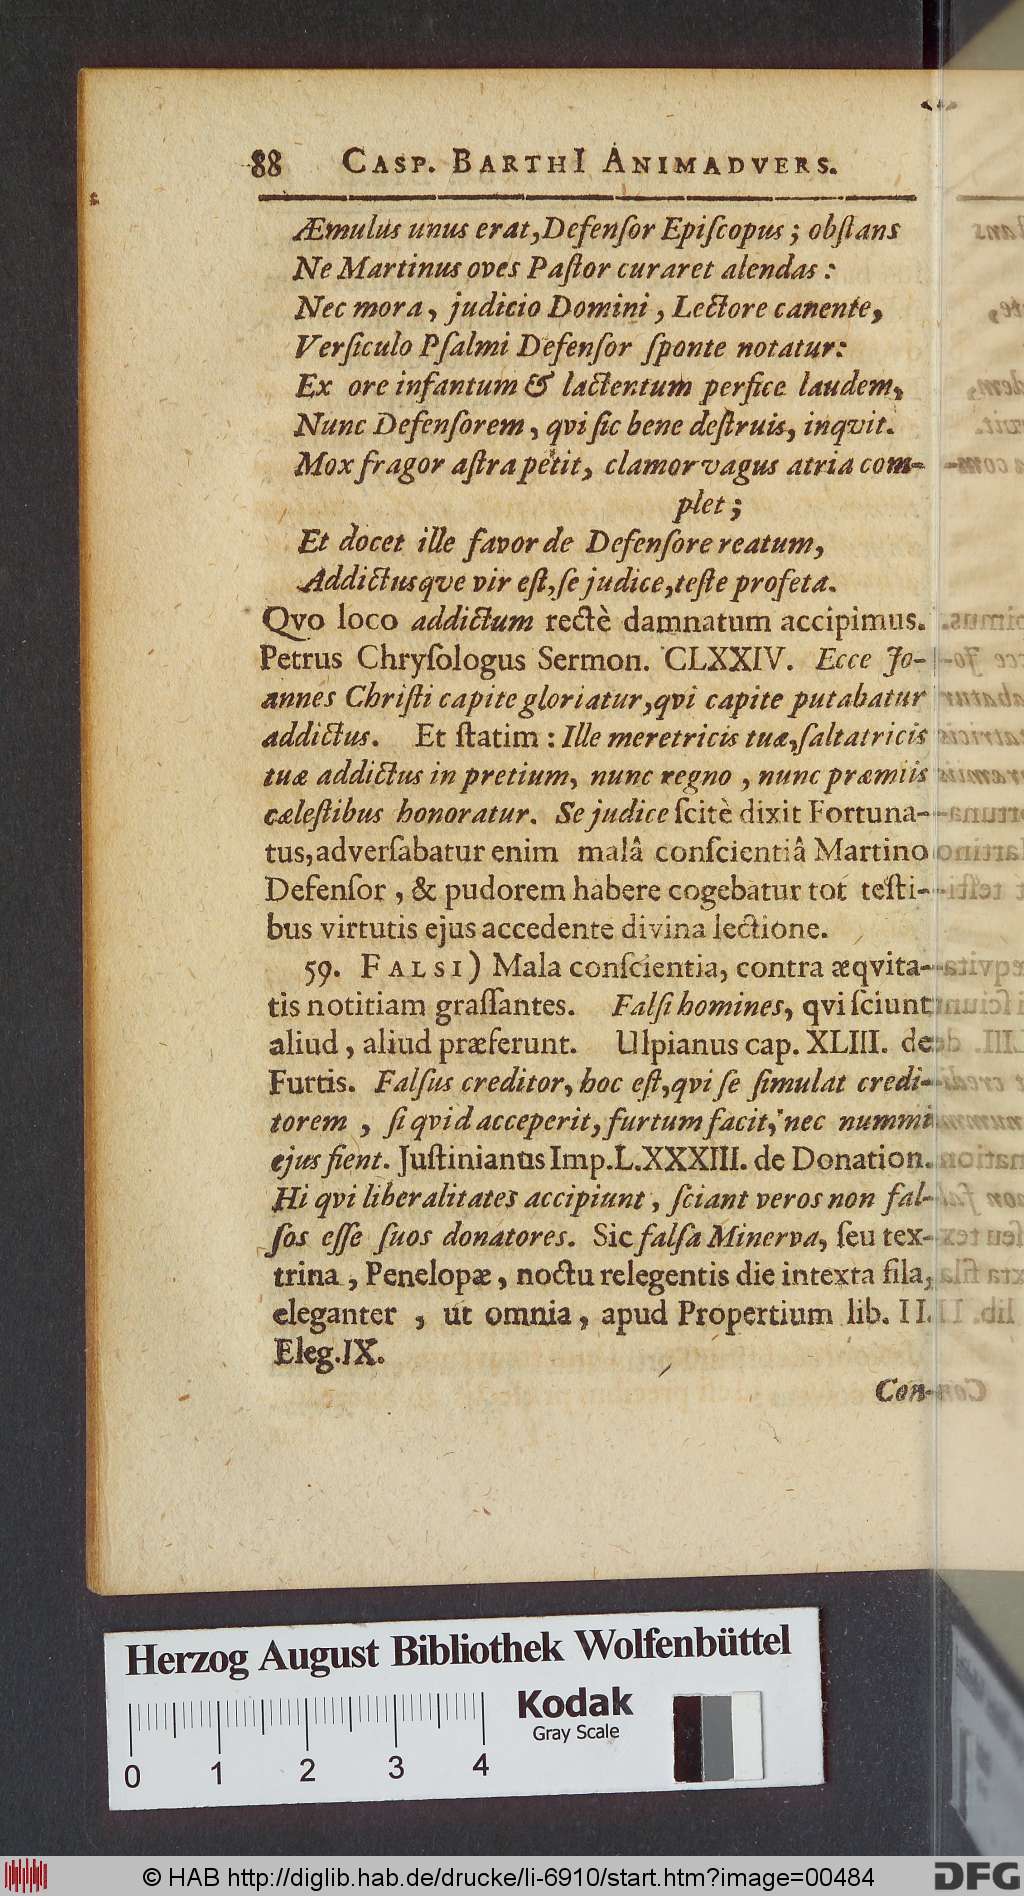 88 CASP. BARTHI ANIMADVERS.
Æmulus unus erat, Defenſor Epiſcopus; obſtans
Ne Martinus oves Paſtor curaret alendas:
Nec mora, judicio Domini, Lectore canente,
Verſiculo Pſalmi Defenſor ſponte notatur:
Ex ore infantum & lactentum perfice laudem,
Nunc Defenſorem, qvi ſic bene deſtruis, inqvit.
Mox fragor aſtra petit, clamor vagus atria com-
plet;
Et docet ille favor de Defenſore reatum,
Addictusqve vir eſt, ſe judice, teſte profeta.
Qvo loco addictum rectè damnatum accipimus.
Petrus Chryſologus Sermon. CLXXIV. Ecce Jo-
annes Chriſti capite gloriatur, qvi capite putabatur
addictus. Et ſtatim: Ille meretricis tuæ, ſaltatricis
tuæ addictus in pretium, nunc regno, nunc præmiis
cæleſtibus honoratur. Se judice ſcitè dixit Fortuna-
tus, adverſabatur enim malâ conſcientiâ Martino
Defenſor, & pudorem habere cogebatur tot teſti-
bus virtutis ejus accedente divina lectione.
59. FALSI) Mala conſcientia, contra æqvita-
tis notitiam graſſantes. Falſi homines, qvi ſciunt
aliud, aliud præferunt. Ulpianus cap. XLIII. de
Furtis. Falſus creditor, hoc eſt, qvi ſe ſimulat credi-
torem, ſi qvid acceperit, furtum facit, nec nummi
ejus fient. Juſtinianus Imp. L. XXXIII. de Donation.
Hi qvi liberalitates accipiunt, ſciant veros non fal-
ſos eſſe ſuos donatores. Sic falſa Minerva, ſeu tex-
trina, Penelopæ, noctu relegentis die intexta fila,
eleganter, ut omnia, apud Propertium lib. II.
Eleg. IX.
Con-
Herzog August Bibliothek Wolfenbüttel
Kodak
Gray Scale
0 1 2 3 4
© HAB http://diglib.hab.de/drucke/li-6910/start.htm?image=00484
DFG